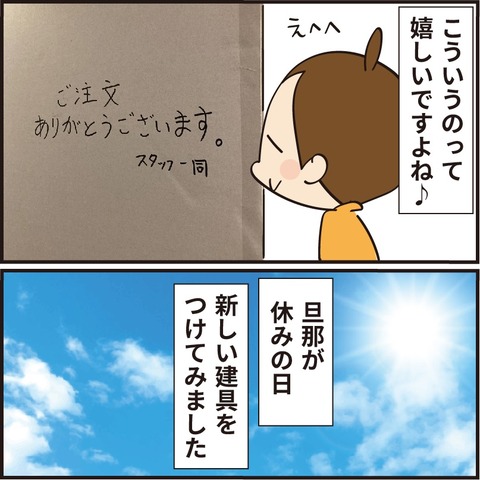 こういうのって
嬉しいですよね♪
えへへ
ご注文
ありがとうございます。
スタッフ一同
旦那が
休みの日
新しい建具を
つけてみました